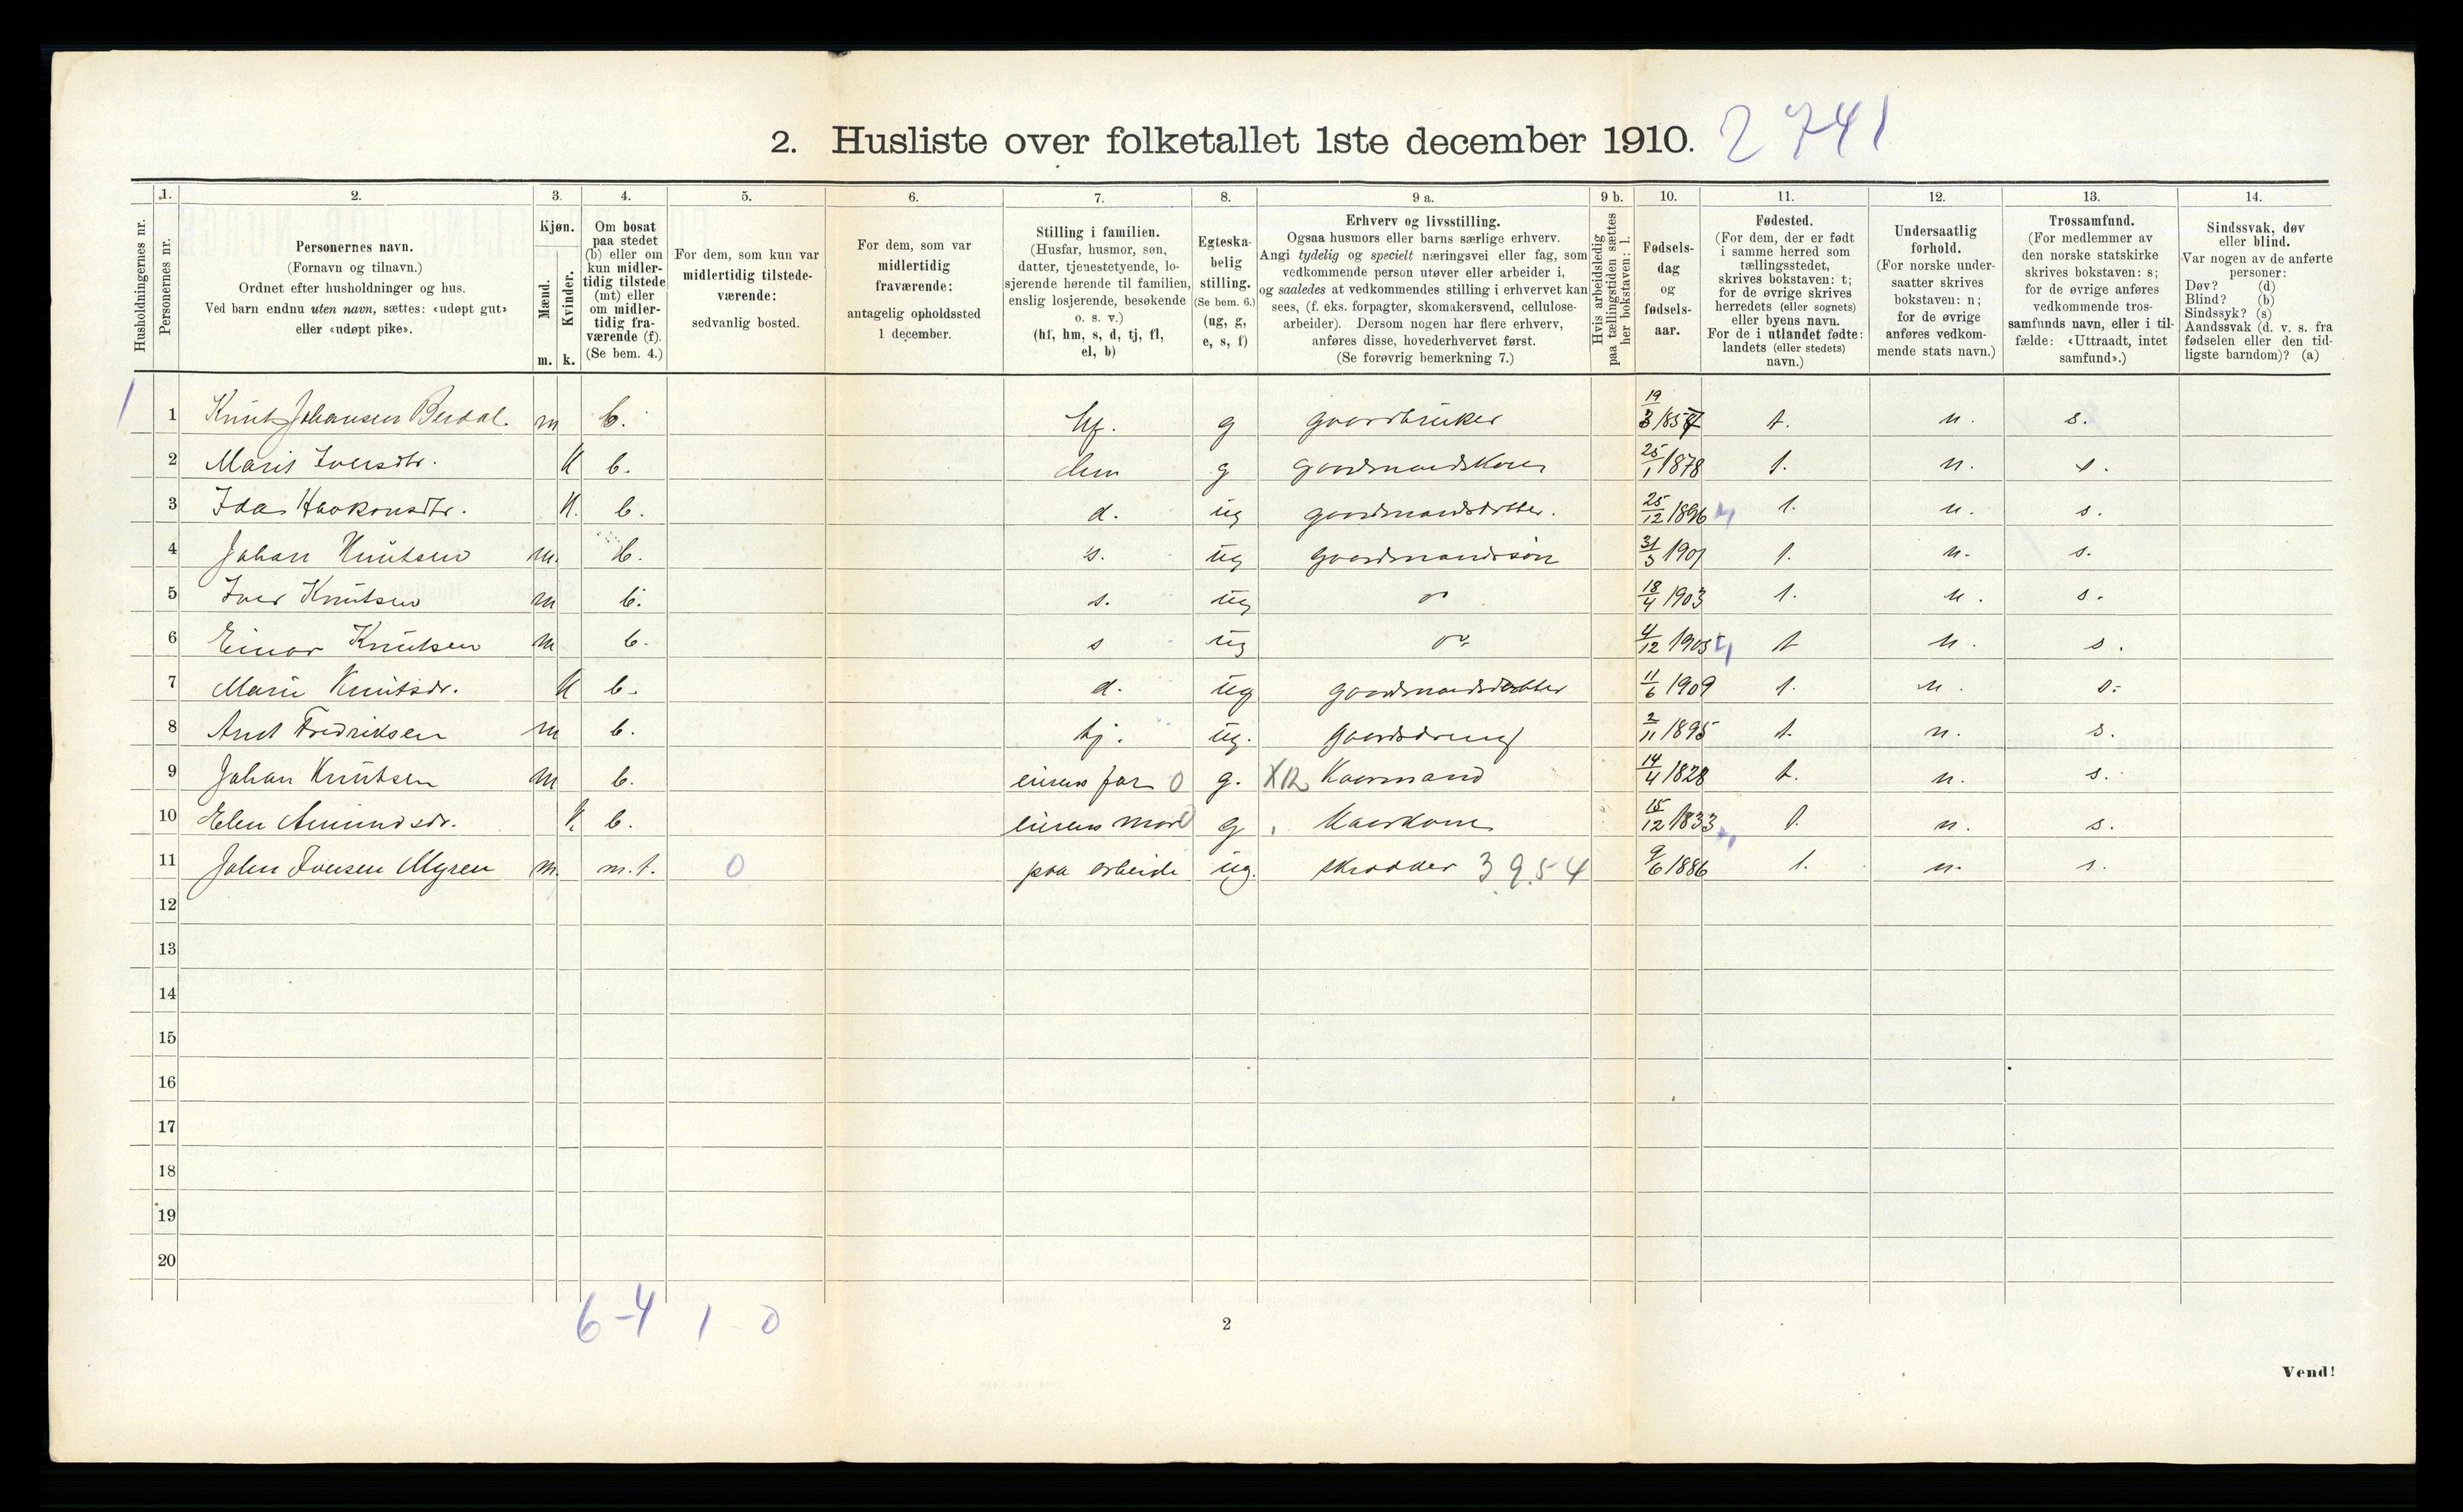 2. Husliste over folketallet 1ste december 1910. 2741
Husholdningernes nr.
1.
Personernes nr.
2.
Personernes navn.
(Fornavn og tilnavn.)
Ordnet efter husholdninger og hus.
Ved barn endnu uten navn, sættes: «udøpt gut»
eller «udøpt pike».
3.
Kjøn.
Mænd.
m.
Kvinder.
k.
4.
Om bosat
paa stedet
(b) eller om
kun midler-
tidig tilstede
(mt) eller
om midler-
tidig fra-
værende (f).
(Se bem. 4.)
5.
For dem, som kun var
midlertidig tilstede-
værende:
sedvanlig bosted.
6.
For dem, som var
midlertidig
fraværende:
antagelig opholdssted
1 december.
7.
Stilling i familien.
(Husfar, husmor, søn,
datter, tjenestetyende, lo-
sjerende hørende til familien,
enslig losjerende, besøkende
o. s. v.)
(hf, hm, s, d, tj, fl,
el, b)
8.
Egteska-
belig
stilling.
(Se bem. 6.)
(ug, g,
e, s, f)
9 a.
Erhverv og livsstilling.
Ogsaa husmors eller barns særlige erhverv.
Angi tydelig og specielt næringsvei eller fag, som
vedkommende person utøver eller arbeider i,
og saaledes at vedkommendes stilling i erhvervet kan
sees, (f. eks. forpagter, skomakersvend, cellulose-
arbeider). Dersom nogen har flere erhverv,
anføres disse, hovederhvervet først.
(Se forøvrig bemerkning 7.)
9 b.
Hvis arbeidsledig
paa tællingstiden sættes
her bokstaven: l.
10.
Fødsels-
dag
og
fødsels-
aar.
11.
Fødested.
(For dem, der er født
i samme herred som
tællingsstedet,
skrives bokstaven: t;
for de øvrige skrives
herredets (eller sognets)
eller byens navn.
For de i utlandet fødte:
landets (eller stedets)
navn.)
12.
Undersaatlig
forhold.
(For norske under-
saatter skrives
bokstaven: n;
for de øvrige
anføres vedkom-
mende stats navn.)
13.
Trossamfund.
(For medlemmer av
den norske statskirke
skrives bokstaven: s;
for de øvrige anføres
vedkommende tros-
samfunds navn, eller i til-
fælde: «Uttraadt, intet
samfund».)
14.
Sindssvak, døv
eller blind.
Var nogen av de anførte
personer:
Døv? (d)
Blind? (b)
Sindssyk? (s)
Aandssvak (d. v. s. fra
fødselen eller den tid-
ligste barndom)? (a)
1 1 Knut Johansen Berdal m b. hf. g gaardbruker 19/3 1857 t. n. s.
2 Marit Iversdtr. k b. hm g gaardmandskone 25/1 1878 t. n. s.
3 Ida Haakonsdtr. k. b. d. ug gaardmandsdatter. 25/12 1896 t. n. s.
4 Johan Knutsen m. b. s. ug gaardmandssøn 31/3 1901 t. n. s.
5 Iver Knutsen m b. s. ug 18/4 1903 t. n. s.
6 Einar Knutsen m b. s ug 4/12 1905 t n. s.
7 Marie Knutsdr. k b. d. ug gaardmandsdatter 11/6 1909 t. n. s.
8 Arnt Fredriksen m b. tj. ug. gaardsdreng 2/11 1895 t. n. s.
9 Johan Knutsen m b. far 0 g. Kaarmand 14/4 1828 t. n. s.
10 Elen Amundsdr. k b. mor 0 g Kaarkone 15/12 1833 t. n. s.
11 John Iversen Myren m. m.t. 0 paa arbeide ug. skrædder 3954 9/6 1886 t. n. s.
12
13
14
15
16
17
18
19
20
6-4 1 0
2
Vend!